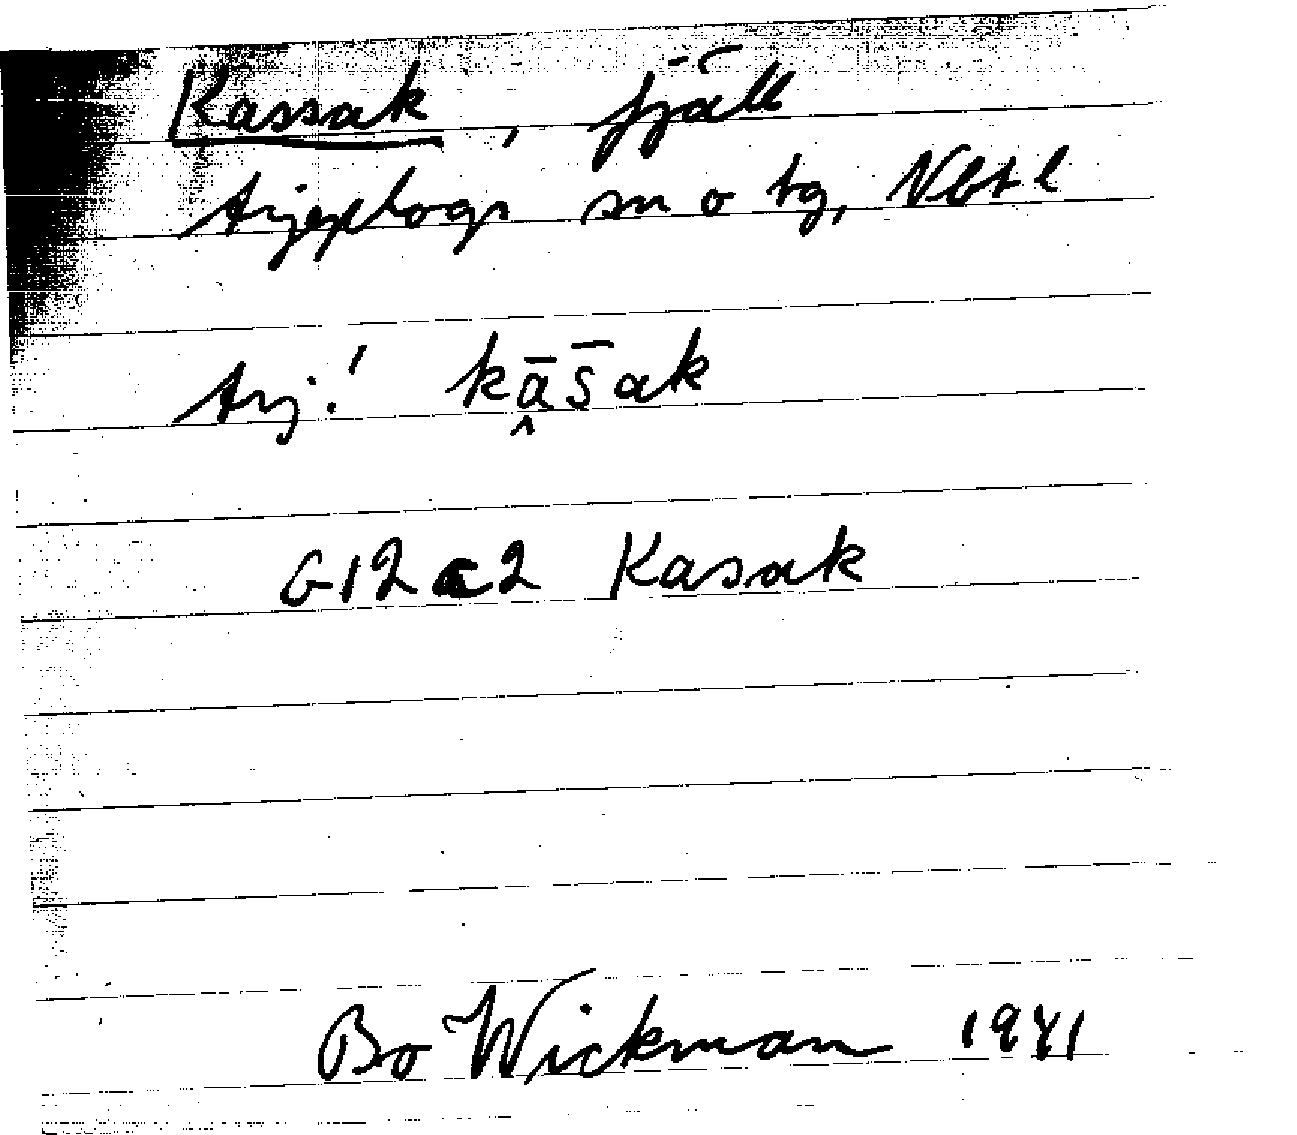 Kassak, fjäll
Arjeplogs sn o tg, Nbtl
Arj! kā̭s̄ak
G12c2 Kasak
Bo Wickman 1941